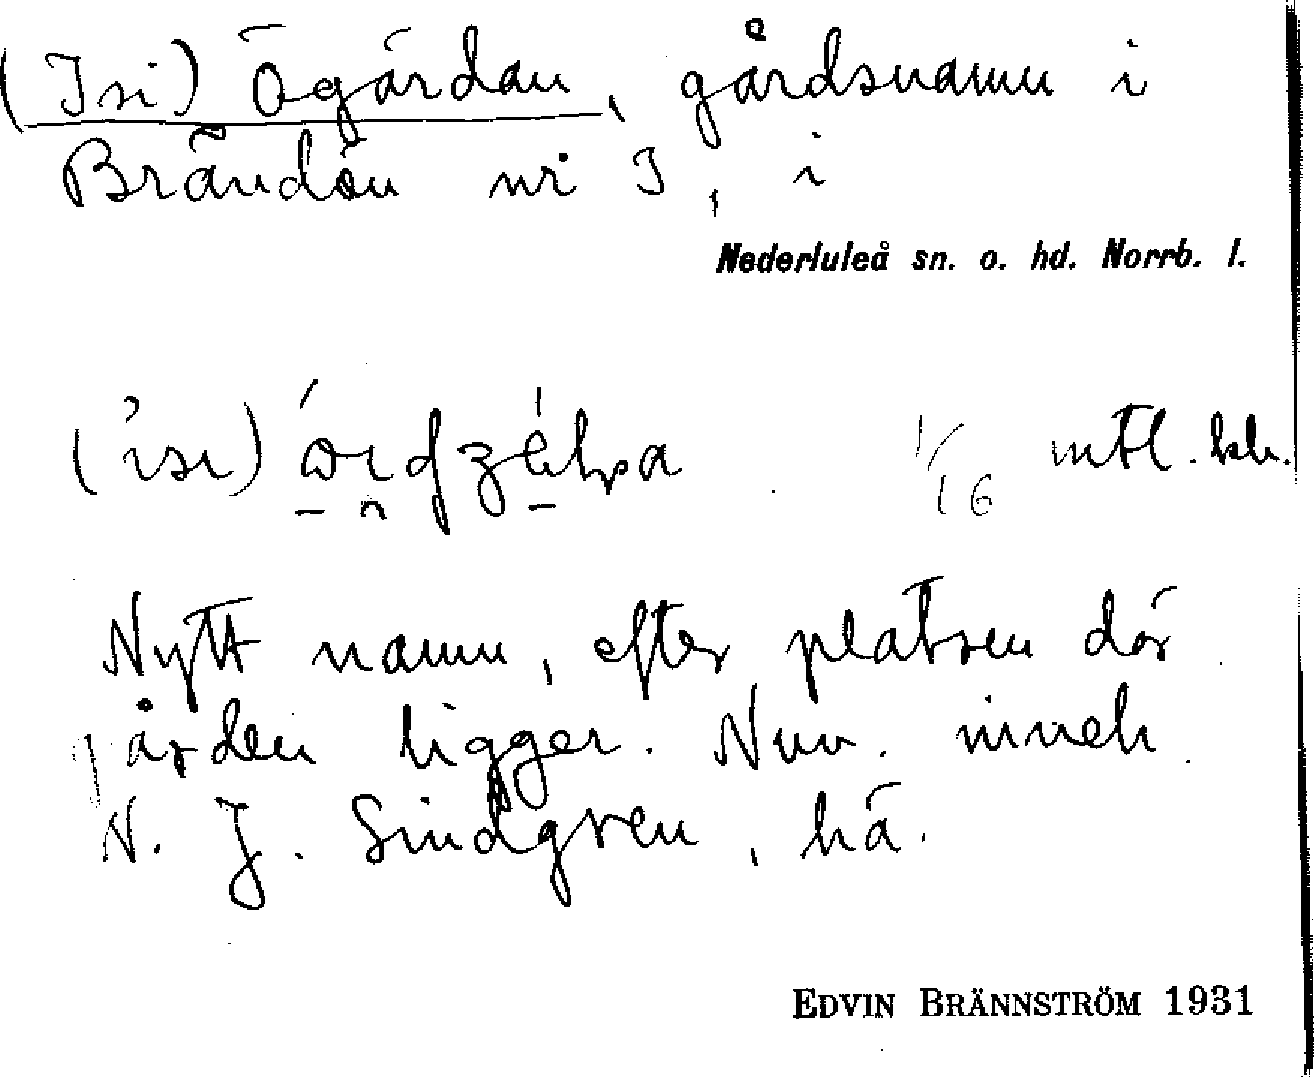 (Isi) Ögärdan, gårdsnamn i
Brändön nr 3, i
Nederluleå sn. o. hd. Norrb. l.
1/16 mtl.
Nytt namn, efter platsen där
gården ligger. Nuv. inneh.
N. J. Lindgren, hä.
EDVIN BRÄNNSTRÖM 1931